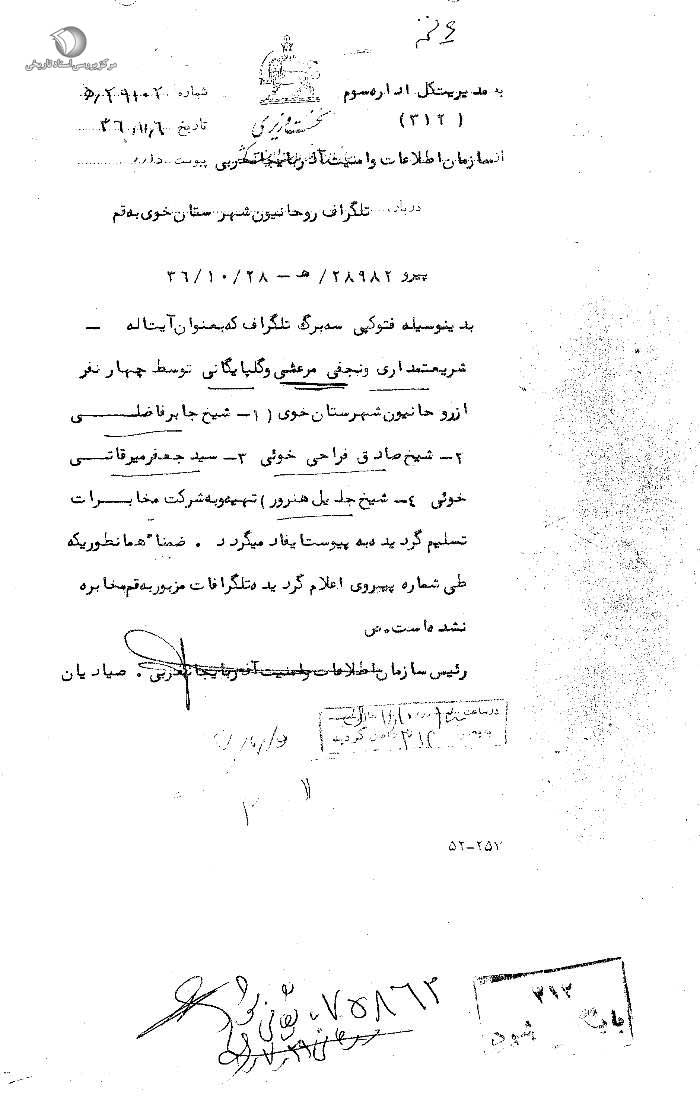 مرکز بررسی اسناد تاریخی
به مدیریت کل اداره سوم
(۳۱۲)
نخست وزیری
شماره ۲۹۱۰۲/ه
تاریخ ۳۶/۱۱/۶
از سازمان اطلاعات و امنیت آذربایجانغربی
پیوست دارد
درباره تلگراف روحانیون شهرستان خوی به قم
پیرو ۲۸۹۸۲/ه - ۳۶/۱۰/۲۸
بدینوسیله فتوکپی سه برگ تلگراف که بعنوان آیتاله -
شریعتمداری و نجفی مرعشی و گلپایگانی توسط چهار نفر
از روحانیون شهرستان خوی (۱- شیخ جابر فاضلی
۲- شیخ صادق فراحی خوئی ۳- سید جعفر میرقاتسی
خوئی ۴- شیخ جلیل هنرور) تهیه و به شرکت مخابرات
تسلیم گردیده به پیوست ایفاد میگردد . ضمنا" همانطوریکه
طی شماره پیروی اعلام گردیده تلگرافات مزبور به قم مخابره
نشده است. ض
رئیس سازمان اطلاعات و امنیت آذربایجانغربی . صیادیان
در ساعت
۳۱۲ گردید
۵۲-۲۵۷
۷۵۸۶۳
۳۱۲
بایگانی شود